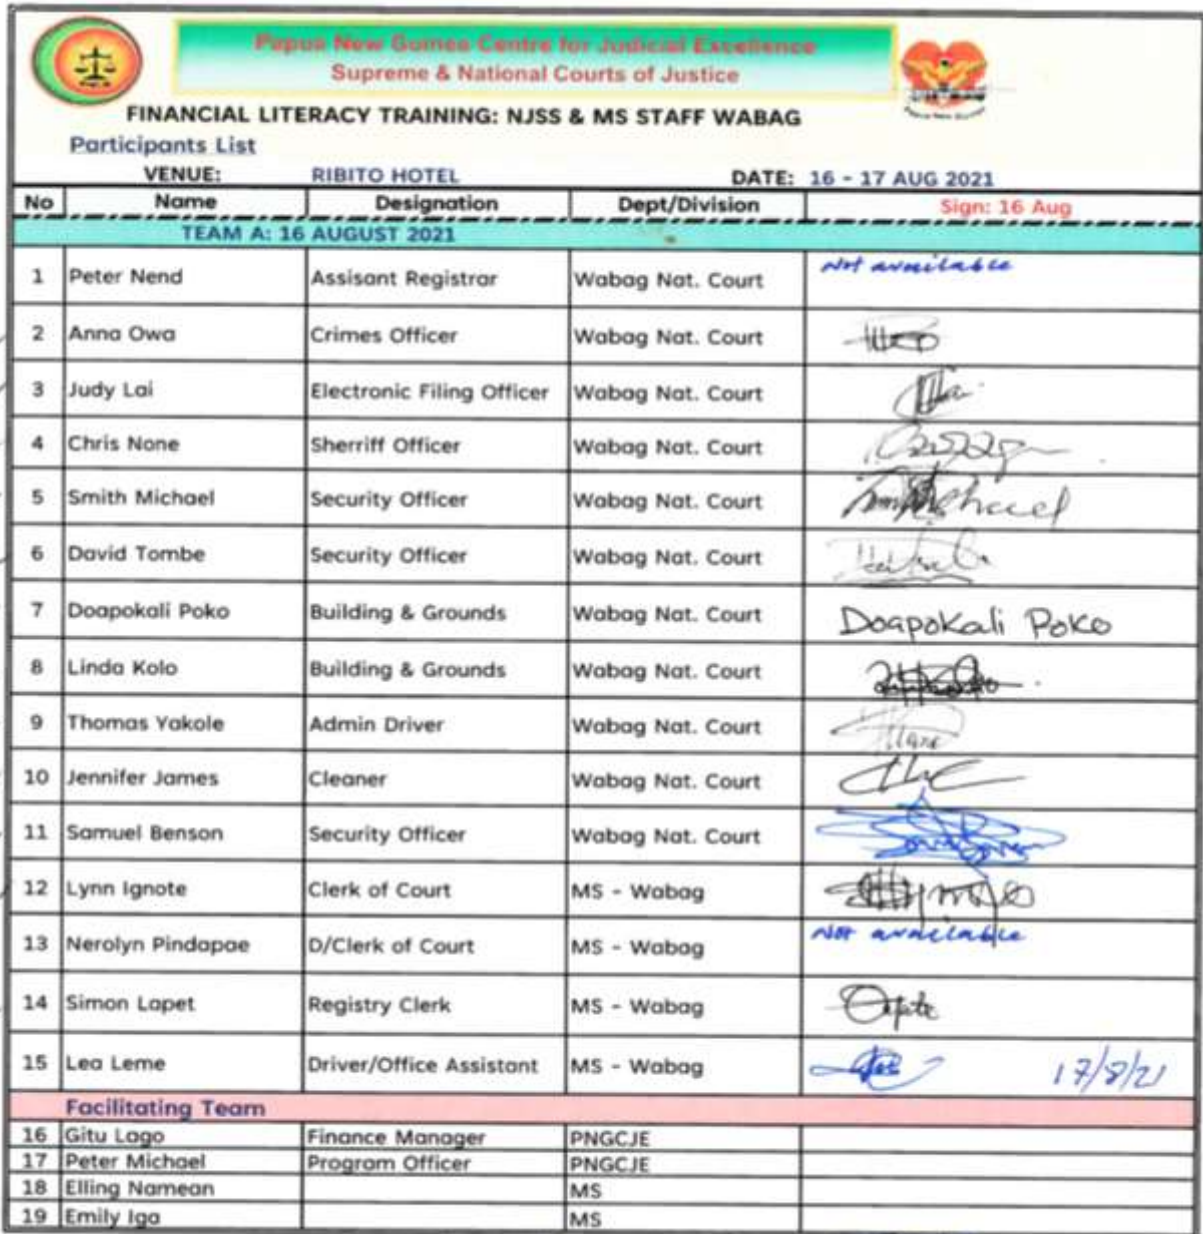 Papua New Guinea Centre for Judicial Excellence
Supreme & National Courts of Justice
FINANCIAL LITERACY TRAINING: NJSS & MS STAFF WABAG
Participants List
VENUE: RIBITO HOTEL DATE: 16 - 17 AUG 2021
No Name Designation Dept/Division Sign: 16 Aug
TEAM A: 16 AUGUST 2021
1 Peter Nend Assisant Registrar Wabag Nat. Court Not available
2 Anna Owa Crimes Officer Wabag Nat. Court
3 Judy Lai Electronic Filing Officer Wabag Nat. Court
4 Chris None Sherriff Officer Wabag Nat. Court
5 Smith Michael Security Officer Wabag Nat. Court
6 David Tombe Security Officer Wabag Nat. Court
7 Doapokali Poko Building & Grounds Wabag Nat. Court Doapokali Poko
8 Linda Kolo Building & Grounds Wabag Nat. Court
9 Thomas Yakole Admin Driver Wabag Nat. Court
10 Jennifer James Cleaner Wabag Nat. Court
11 Samuel Benson Security Officer Wabag Nat. Court
12 Lynn Ignote Clerk of Court MS - Wabag
13 Nerolyn Pindapae D/Clerk of Court MS - Wabag Not available
14 Simon Lapet Registry Clerk MS - Wabag
15 Lea Leme Driver/Office Assistant MS - Wabag 17/8/21
Facilitating Team
16 Gitu Lago Finance Manager PNGCJE
17 Peter Michael Program Officer PNGCJE
18 Elling Namean MS
19 Emily Iga MS